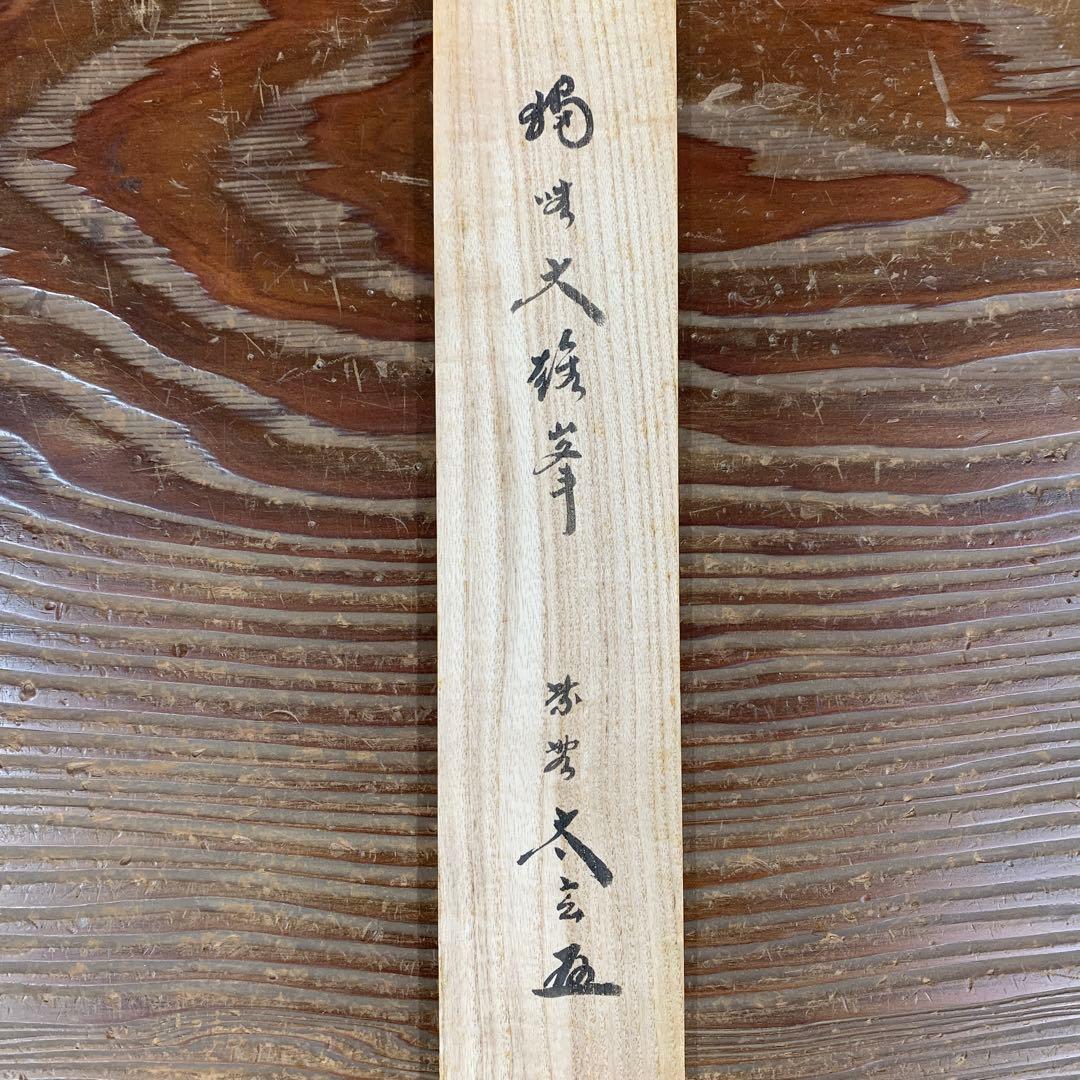 獨坐大雄峯
紫野太玄